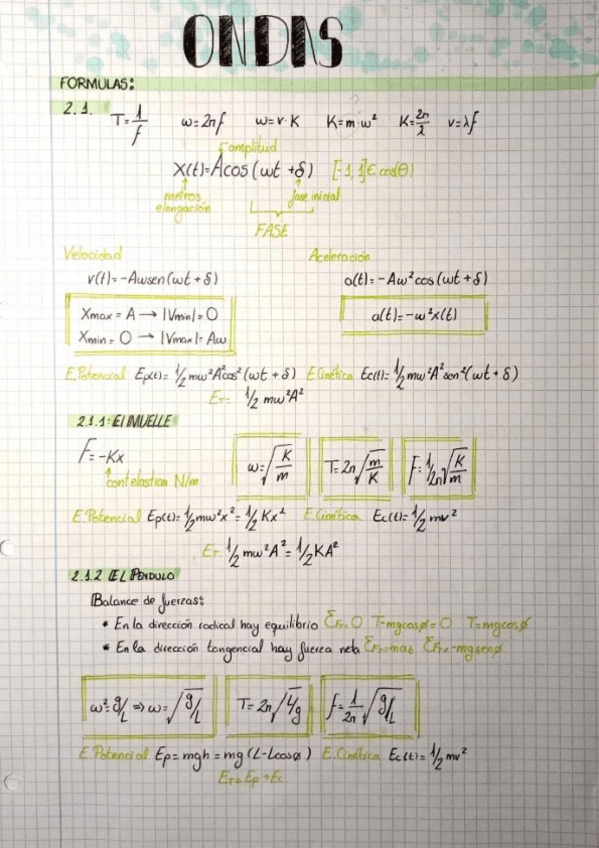 ONDAS
FORMULAS:
2.1. T=1/f ω=2πf ω=v·K K=m·ω² K=2π/λ v=λf
amplitud
X(t)=Acos(ωt+δ) [-1,1]∈cos(θ)
metros elongación fase inicial
FASE
Velocidad Aceleración
v(t)=-Aωsen(ωt+δ) a(t)=-Aω²cos(ωt+δ)
Xmax=A→|Vmin|=0 a(t)=-ω²x(t)
Xmin=0→|Vmax|=Aω
E.Potencial Ep(t)=1/2mω²A²cos²(ωt+δ) E.Cinética Ec(t)=1/2mω²A²sen²(ωt+δ)
ET=1/2mω²A²
2.1.1: El MUELLE
F=-Kx
cont elastica N/m
ω=√K/m T=2π√m/K F=1/2π√K/m
E.Potencial Ep(t)=1/2mω²x²=1/2Kx² E.Cinética Ec(t)=1/2mv²
ET=1/2mω²A²=1/2KA²
2.1.2 EL PENDULO
Balance de fuerzas:
* En la dirección radical hay equilibrio ΣFr=0 T-mgcosø=0 T=mgcosø
* En la dirección tangencial hay fuerza neta ΣFt=mat ΣFt=-mgsenø
ω²=g/L⇒ω=√g/L T=2π√L/g f=1/2π√g/L
E.Potencial Ep=mgh=mg(L-Lcosø) E.Cinética Ec(t)=1/2mv²
ET=Ep+Ec